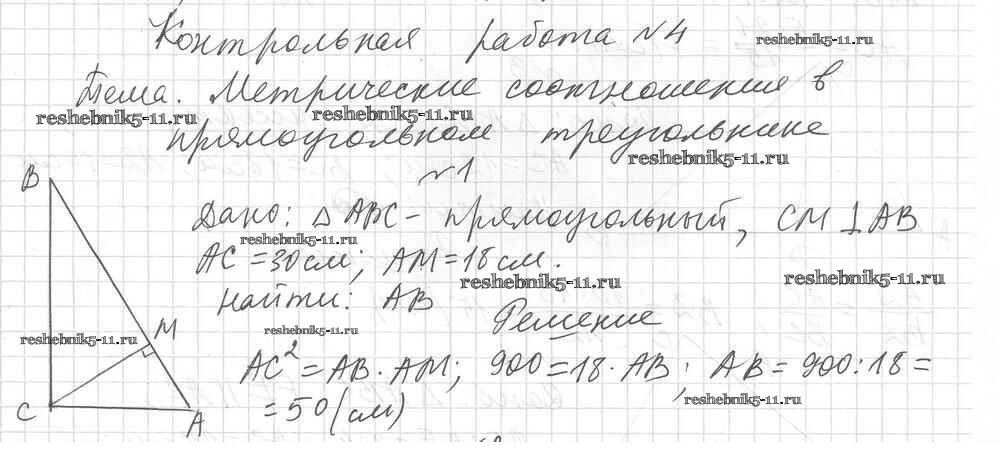 Контрольная работа №4
reshebnik5-11.ru
Тема. Метрические соотношения в
reshebnik5-11.ru reshebnik5-11.ru
прямоугольном треугольнике
reshebnik5-11.ru
№1
B
Дано: △ABC - прямоугольный, CM ⊥ AB
reshebnik5-11.ru
AC = 30 см; AM = 18 см.
reshebnik5-11.ru reshebnik5-11.ru
Найти: AB
Решение
reshebnik5-11.ru reshebnik5-11.ru
M
AC² = AB · AM; 900 = 18 · AB; AB = 900 : 18 =
reshebnik5-11.ru
= 50 (см)
C
A